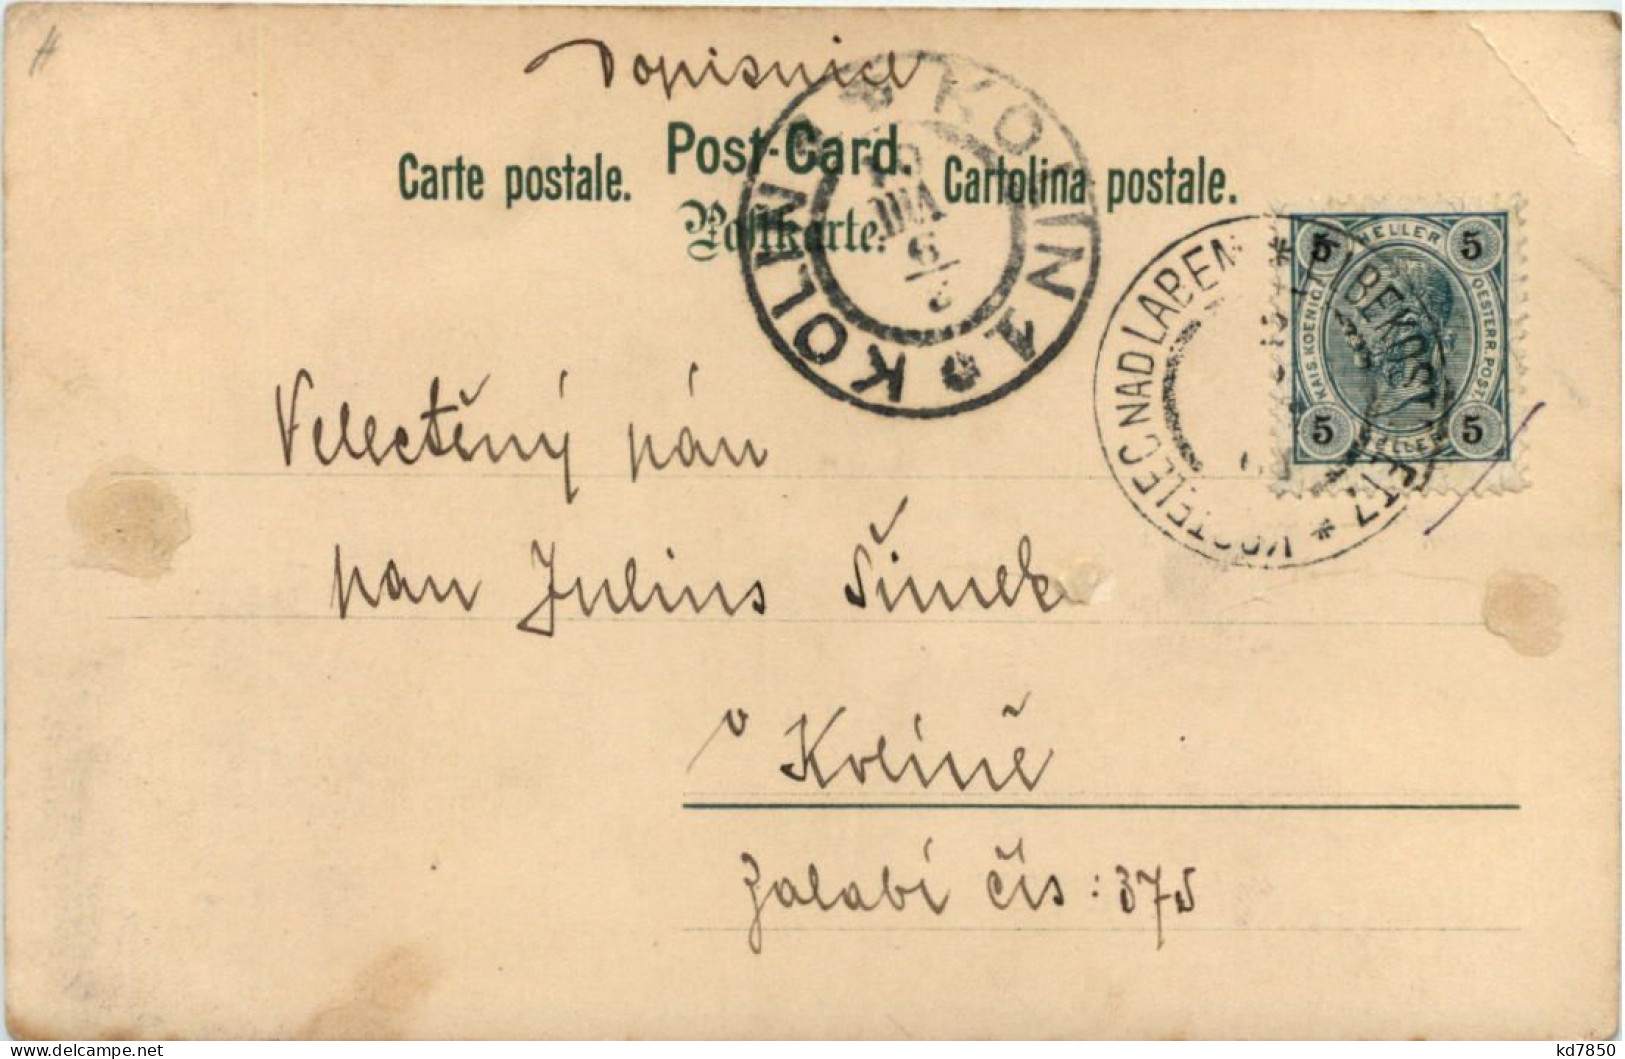 Dopisnice
Post-Card.
Carte postale. Cartolina postale.
Postkarte.
KOLIN 1 * KOLIN 1
VIII
KOSTELEC NAD LABEM *
5 HELLER 5
KAIS. KOENIGL. OESTERR. POST.
5 HELLER 5
Velectěný pán
pan Julius Šimek
v Kolíně
Zalabí čís: 375
kd7850